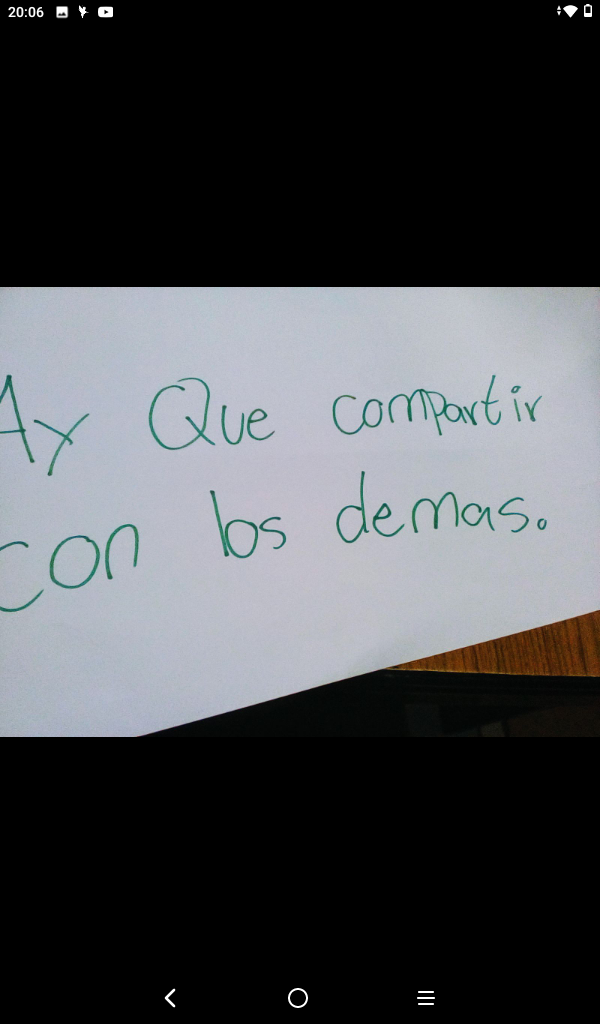 20:06
Ay Que compartir
con los demas.